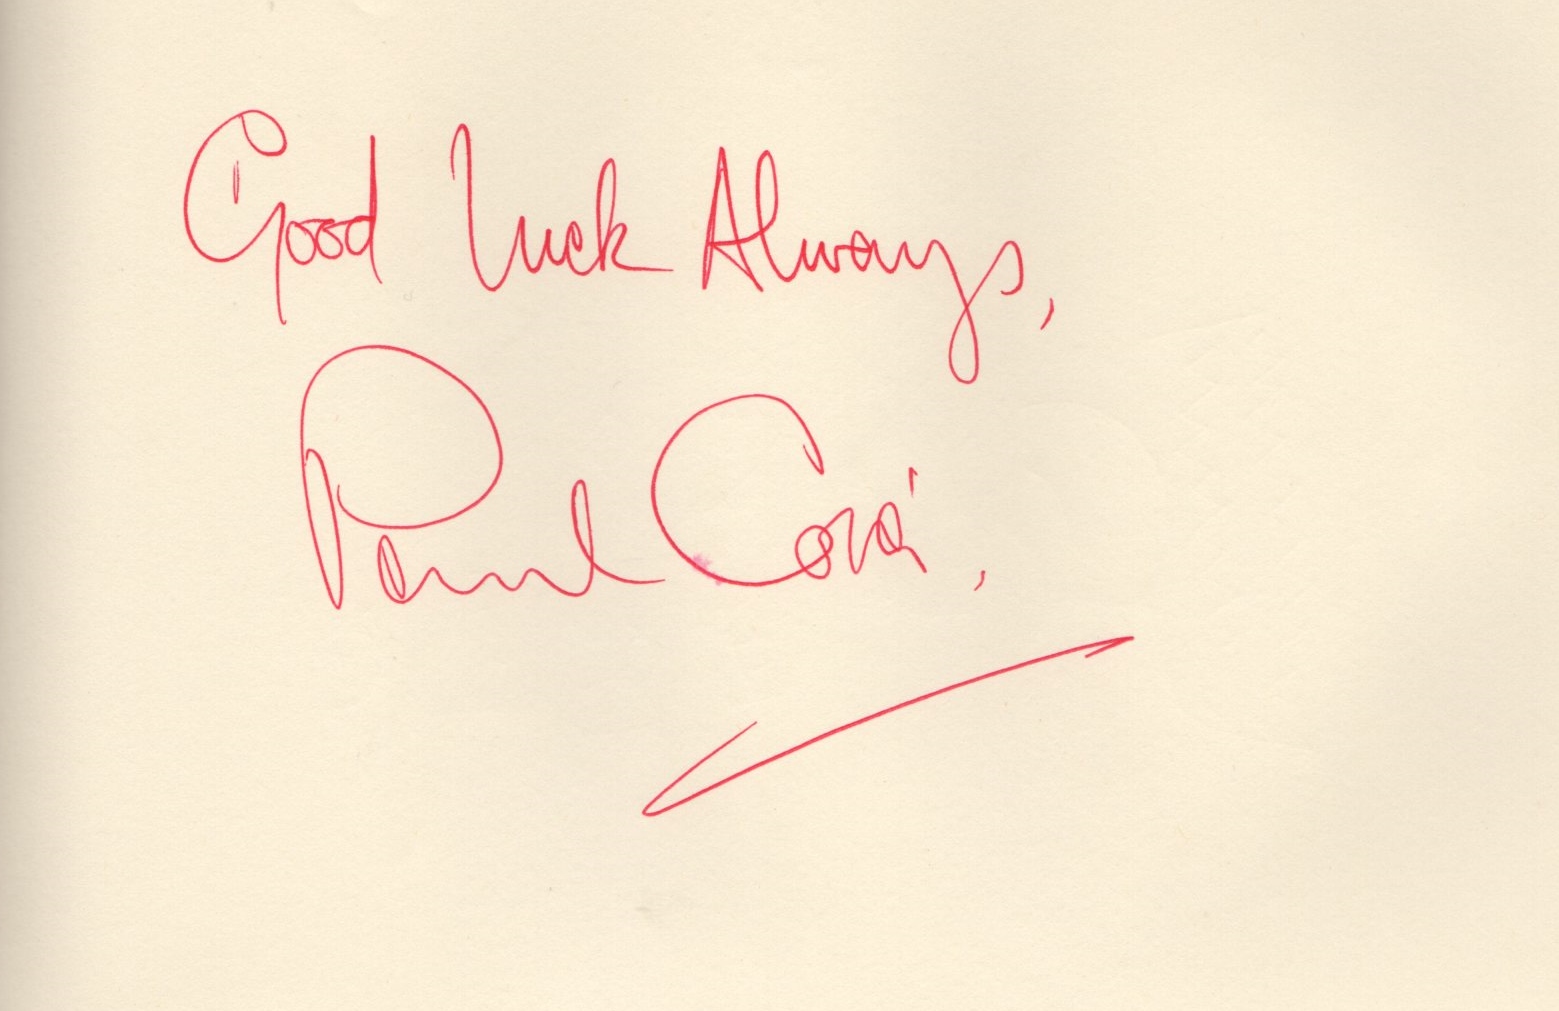 Good Luck Always,
Paul